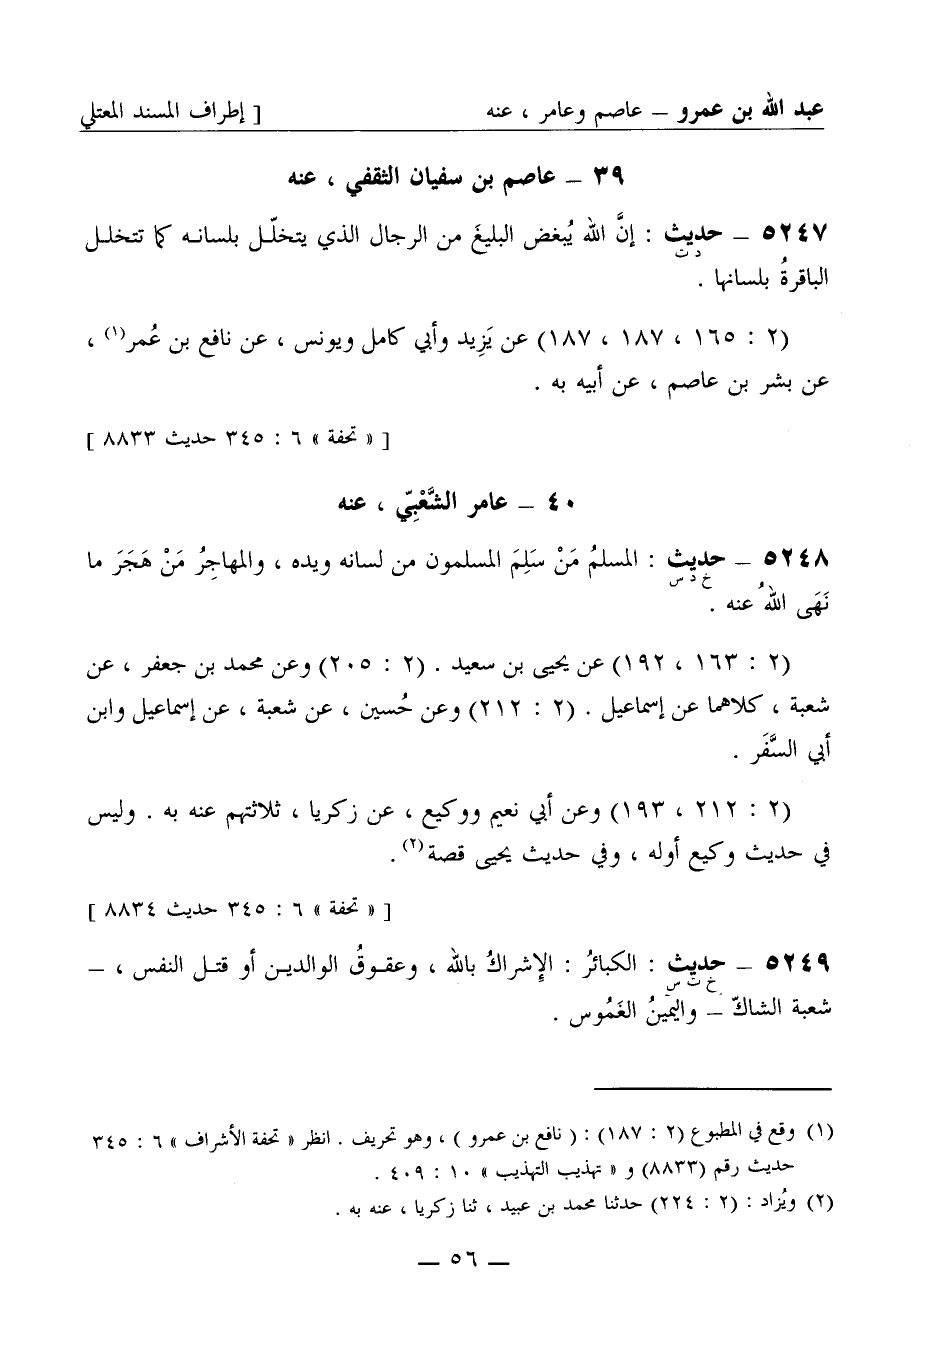 عبد الله بن عمرو – عاصم وعامر ، عنه [ إطراف المسند المعتلي
٣٩ – عاصم بن سفيان الثقفي ، عنه
٥٢٤٧ – حديث : إنَّ الله يُبغض البليغَ من الرجال الذي يتخلّل بلسانه كما تتخلل
د ت
الباقرةُ بلسانها .
(٢ : ١٦٥ ، ١٨٧ ، ١٨٧) عن يَزِيد وأبي كامل ويونس ، عن نافع بن عُمر(١) ،
عن بشر بن عاصم ، عن أبيه به .
[ « تحفة » ٦ : ٣٤٥ حديث ٨٨٣٣ ]
٤٠ – عامر الشَّعْبِيّ ، عنه
٥٢٤٨ – حديث : المسلمُ مَنْ سَلِمَ المسلمون من لسانه ويده ، والمهاجِرُ مَنْ هَجَرَ ما
خ د س
نَهَى اللهُ عنه .
(٢ : ١٦٣ ، ١٩٢) عن يحيى بن سعيد . (٢ : ٢٠٥) وعن محمد بن جعفر ، عن
شعبة ، كلاهما عن إسماعيل . (٢ : ٢١٢) وعن حُسين ، عن شعبة ، عن إسماعيل وابن
أبي السَّفَر .
(٢ : ٢١٢ ، ١٩٣) وعن أبي نعيم ووكيع ، عن زكريا ، ثلاثتهم عنه به . وليس
في حديث وكيع أوله ، وفي حديث يحيى قصة(٢) .
[ « تحفة » ٦ : ٣٤٥ حديث ٨٨٣٤ ]
٥٢٤٩ – حديث : الكبائرُ : الإشراكُ بالله ، وعقوقُ الوالدين أو قتل النفس ، –
خ ت س
شعبة الشاكّ – واليمينُ الغَمُوس .
(١) وقع في المطبوع (٢ : ١٨٧) : ( نافع بن عمرو ) ، وهو تحريف . انظر « تحفة الأشراف » ٦ : ٣٤٥
حديث رقم (٨٨٣٣) و « تهذيب التهذيب » ١٠ : ٤٠٩ .
(٢) ويُزاد : (٢ : ٢٢٤) حدثنا محمد بن عبيد ، ثنا زكريا ، عنه به .
– ٥٦ –